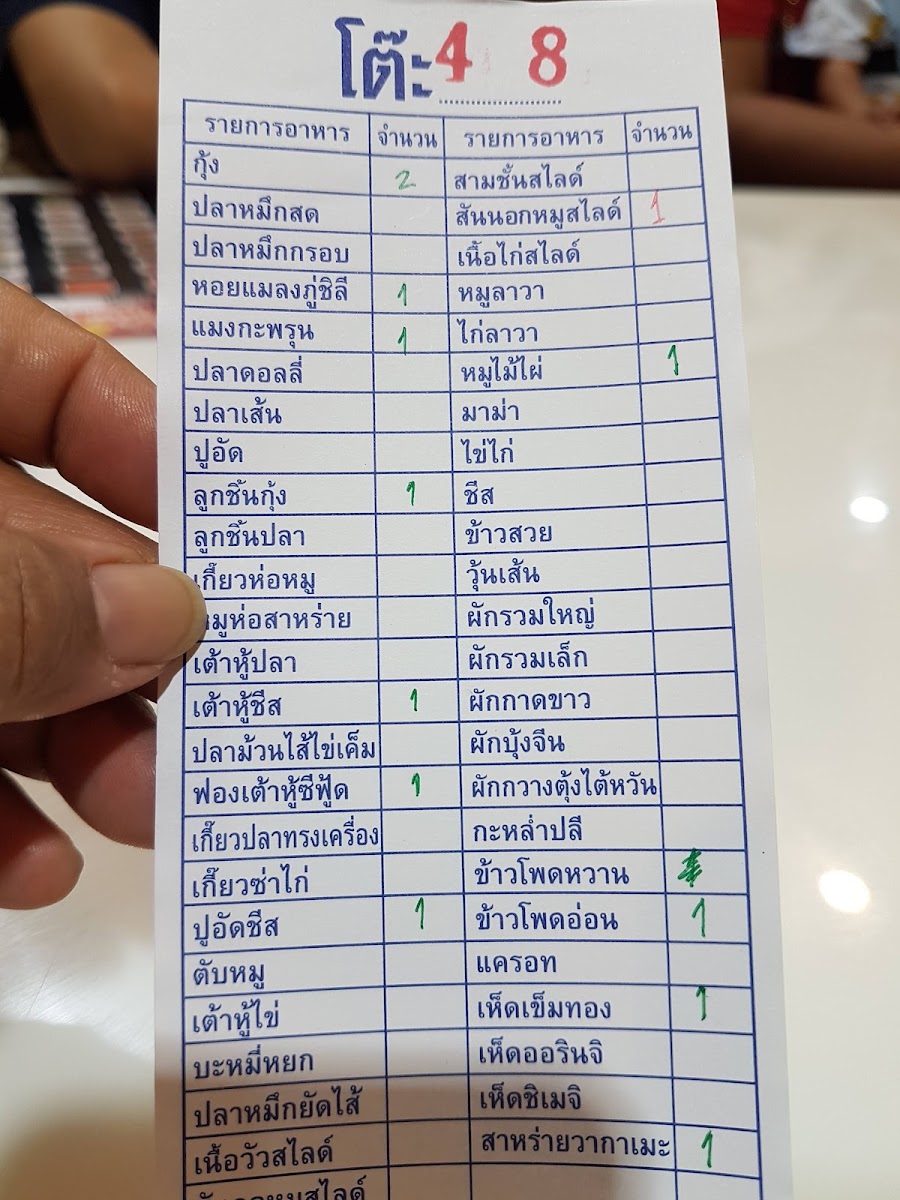 โต๊ะ 4 8
รายการอาหาร จำนวน รายการอาหาร จำนวน
กุ้ง 2 สามชั้นสไลด์
ปลาหมึกสด สันนอกหมูสไลด์ 1
ปลาหมึกกรอบ เนื้อไก่สไลด์
หอยแมลงภู่ชิลี 1 หมูลาวา
แมงกะพรุน 1 ไก่ลาวา
ปลาดอลลี่ หมูไม้ไผ่ 1
ปลาเส้น มาม่า
ปูอัด ไข่ไก่
ลูกชิ้นกุ้ง 1 ชีส
ลูกชิ้นปลา ข้าวสวย
เกี๊ยวห่อหมู วุ้นเส้น
หมูห่อสาหร่าย ผักรวมใหญ่
เต้าหู้ปลา ผักรวมเล็ก
เต้าหู้ชีส 1 ผักกาดขาว
ปลาม้วนไส้ไข่เค็ม ผักบุ้งจีน
ฟองเต้าหู้ซีฟู้ด 1 ผักกวางตุ้งไต้หวัน
เกี๊ยวปลาทรงเครื่อง กะหล่ำปลี
เกี๊ยวซ่าไก่ ข้าวโพดหวาน
ปูอัดชีส 1 ข้าวโพดอ่อน 1
ตับหมู แครอท
เต้าหู้ไข่ เห็ดเข็มทอง 1
บะหมี่หยก เห็ดออรินจิ
ปลาหมึกยัดไส้ เห็ดชิเมจิ
เนื้อวัวสไลด์ สาหร่ายวากาเมะ 1